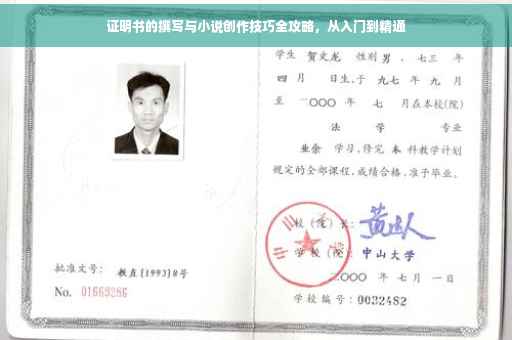 证明书的撰写与小说创作技巧全攻略，从入门到精通
学生 贺文龙 性别 男，七三 年
四 月 日生，于 九七 年 九 月
至 二〇〇〇 年 七 月在本校(院)
法 学 专业
业余 学习，修完 本 科教学计划
规定的全部课程，成绩合格，准予毕业。
校（院）长：
学校（院）：中山大学
二〇〇〇 年 七 月 一 日
学校编号：0032482
批准文号：教直[1993]8号
No. 01669286